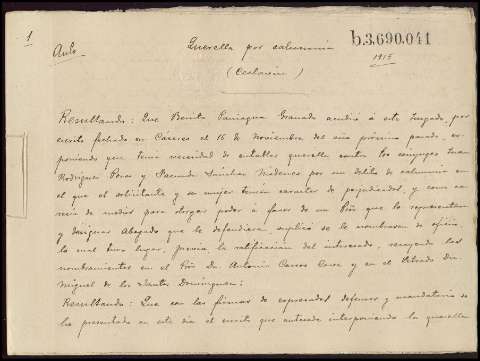 1
b.3.690.041
1915
Auto
Querella por calumnia
(Ceclavín)
Resultando: Que Benito Paniagua Granado acudió á este Juzgado, por
escrito fechado en Cáceres el 15 de Noviembre del año próximo pasado, ex-
poniendo que tenia necesidad de entablar querella contra los cónyuges Juan
Rodríguez Perez y Facunda Sánchez por un delito de calumnia en
el que el solicitante y su mujer tenían carácter de perjudicados, y como ca-
recia de medios para otorgar poder á favor de un Pôr que le representara
y designar Abogado que le defendiera, suplicó se le nombraran de oficio,
lo cual tuvo lugar, previa la ratificación del interesado, recayendo los
nombramientos en el Pôr Dn. Antonio y en el Letrado Dn.
Miguel de los Santos Domínguez;
Resultando: Que con las firmas de expresados defensor y mandatario se
ha presentado en este día el escrito que antecede interponiendo la querella